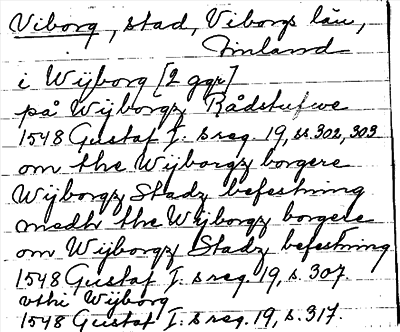 Viborg, stad, Viborgs län,
Finland
i Wijborg [2 ggr]
på Wijborgz Rådstufwe
1548 Gustaf I:s reg. 19, ss. 302, 303
om the Wijborgz borgere
Wijborgz Stadz befestning
medh the Wijborgz borgere
om Wijborgz Stadz befestning
1548 Gustaf I:s reg. 19, s. 307
vthi Wijborg
1548 Gustaf I:s reg. 19, s. 317.